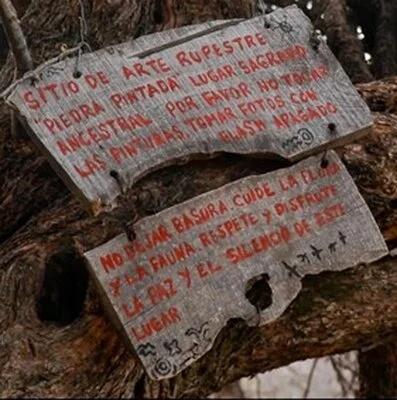 SITIO DE ARTE RUPESTRE
"PIEDRA PINTADA" LUGAR SAGRADO
ANCESTRAL POR FAVOR NO TOCAR
LAS PINTURAS, TOMAR FOTOS CON
FLASH APAGADO
NO DEJAR BASURA CUIDE LA FLORA
Y LA FAUNA. RESPETE Y DISFRUTE
LA PAZ Y EL SILENCIO DE ESTE
LUGAR